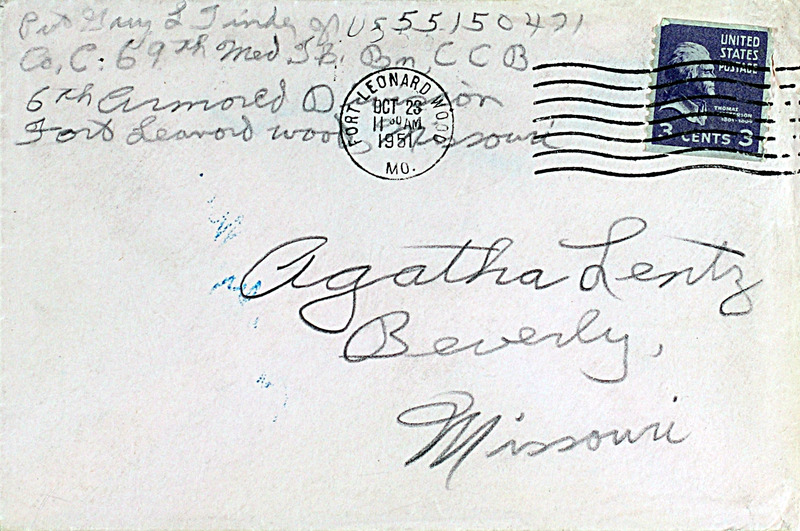 Pvt Gary L Tinder Jr US 55150471
Co, C. 69th Med Tk. Bn, C C B
6th Armored Division
Fort Leanord wood, Missouri
FORT LEONARD WOOD
OCT 23
11 30 AM
1951
MO.
UNITED
STATES
POSTAGE
THOMAS
JEFFERSON
3 CENTS 3
Agatha Lentz
Beverly,
Missouri